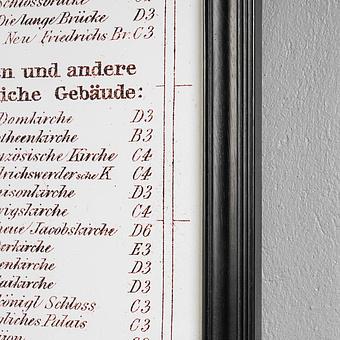 Schlossbrücke C2
Die lange Brücke D3
Neu Friedrichs Br. C3
n und andere
iche Gebäude:
Domkirche D3
otheenkirche B3
nzösische Kirche C4
drichswerdersche K C4
nisonkirche D3
wigskirche C4
neue Jacobskirche D6
erkirche E3
enkirche D3
laikirche D3
königl Schloss C3
gliches Palais C3